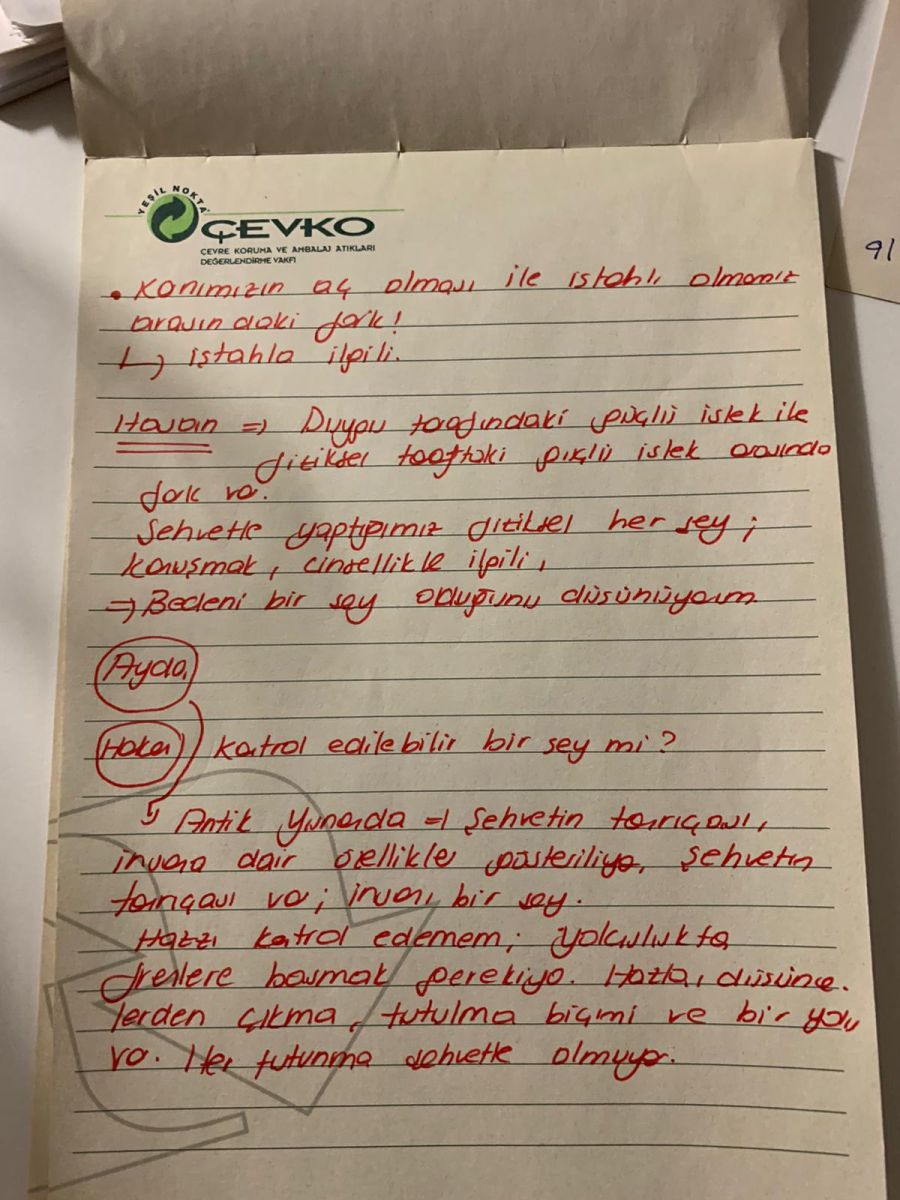 YEŞİL NOKTA
ÇEVKO
ÇEVRE KORUMA VE AMBALAJ ATIKLARI
DEĞERLENDİRME VAKFI
91
• Karnımızın aç olması ile iştahlı olmamız
arasındaki fark!
↳ iştahla ilgili.
Hasan => Duygu tarafındaki güçlü istek ile
fiziksel taraftaki güçlü istek arasında
fark var.
Şehvetle yaptığımız fiziksel her şey;
konuşmak, cinsellikle ilgili,
=> Bedeni bir şey olduğunu düşünüyorum
Ayda
Hakan Kontrol edilebilir bir şey mi?
↳ Antik Yunanda => Şehvetin tanrıçası,
insana dair özellikle gösteriliyor, şehvetin
tanrıçası var; insani bir şey.
Hazzı kontrol edemem; yolculukta
frenlere basmak gerekiyor. Hazlar, düşünce-
lerden çıkma, tutulma biçimi ve bir yolu
var. Her tutunma şehvetle olmuyor.